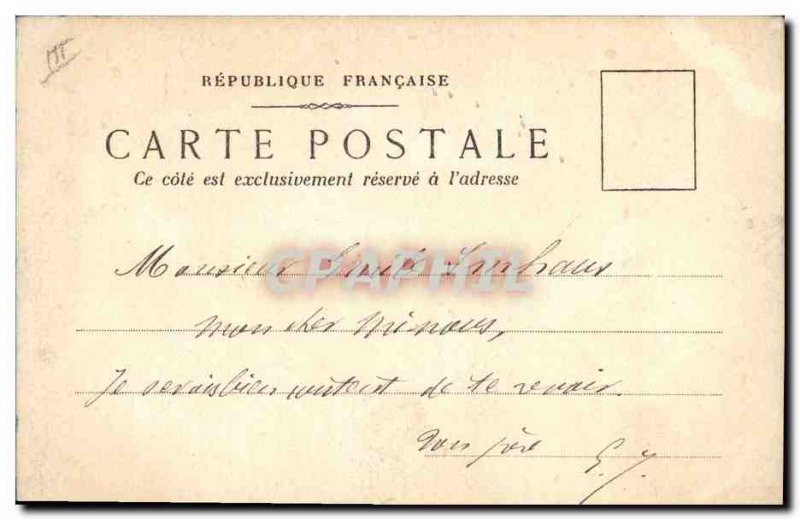 RÉPUBLIQUE FRANÇAISE
CARTE POSTALE
Ce côté est exclusivement réservé à l'adresse
Monsieur Emile
CPAPHIL
mon cher
Je serais bien content de te revoir.
ton père